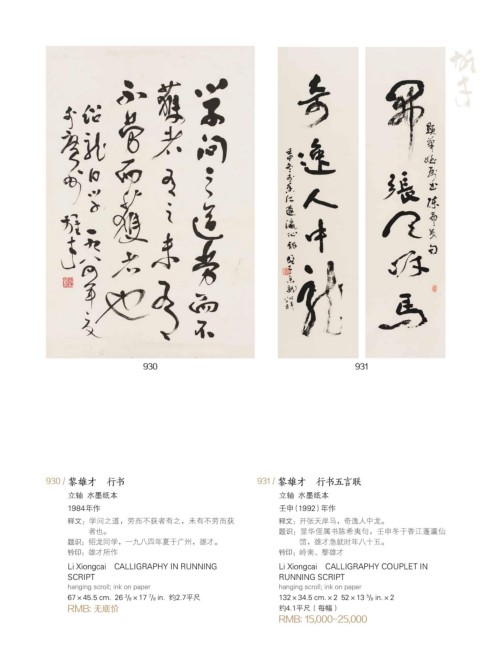 學問之道勞而不
獲者有之未有
不勞而獲者也
绍龙同学一九八四年夏
于廣州 雄才
開張天岸馬
奇逸人中龍
930
931
930 / 黎雄才 行书
立轴 水墨纸本
1984年作
释文：学问之道，劳而不获者有之，未有不劳而获
者也。
题识：绍龙同学，一九八四年夏于广州，雄才。
钤印：雄才所作
Li Xiongcai CALLIGRAPHY IN RUNNING
SCRIPT
hanging scroll; ink on paper
67 × 45.5 cm. 26 3/8 × 17 7/8 in. 约2.7平尺
RMB: 无底价
931 / 黎雄才 行书五言联
立轴 水墨纸本
壬申（1992）年作
释文：开张天岸马，奇逸人中龙。
题识：显华侄属书陈希夷句，壬申冬于香江蓬瀛仙
馆，雄才急就时年八十五。
钤印：岭南、黎雄才
Li Xiongcai CALLIGRAPHY COUPLET IN
RUNNING SCRIPT
hanging scroll; ink on paper
132 × 34.5 cm. × 2 52 × 13 5/8 in. × 2
约4.1平尺（每幅）
RMB: 15,000-25,000